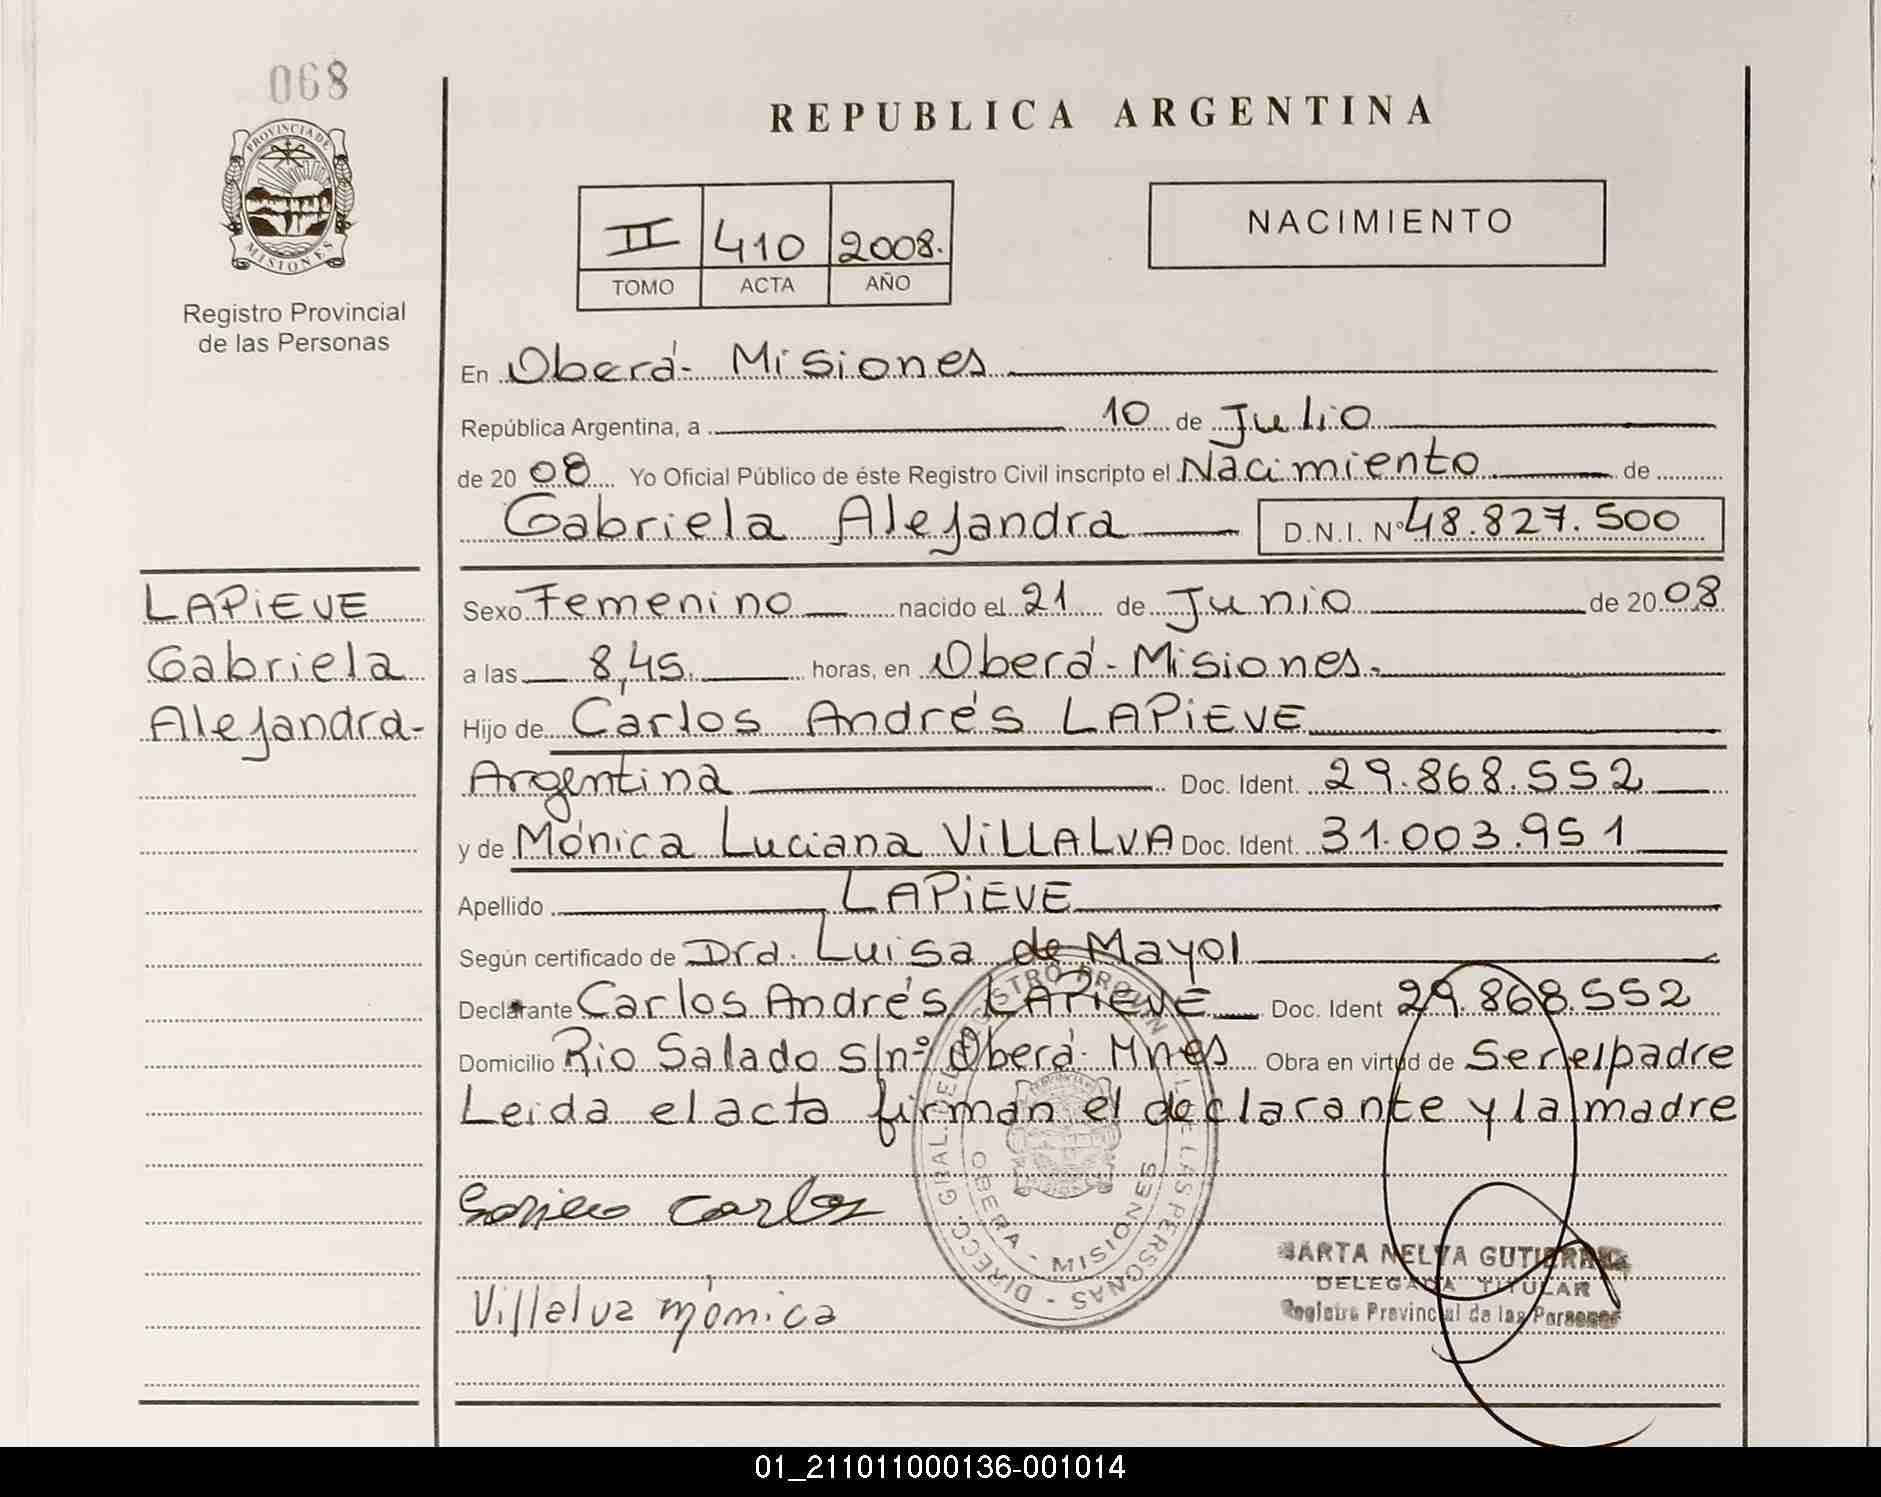 068
PROVINCIA DE
MISIONES
Registro Provincial
de las Personas
REPUBLICA ARGENTINA
II 410 2008.
TOMO ACTA AÑO
NACIMIENTO
En Oberá- Misiones
República Argentina, a 10 de Julio
de 20 08 Yo Oficial Público de éste Registro Civil inscripto el Nacimiento de
Gabriela Alejandra D.N.I. Nº 48.827.500
LAPiEVE
Gabriela
Alejandra-
Sexo Femenino nacido el 21 de Junio de 20 08
a las 8,45 horas, en Oberá- Misiones.
Hijo de Carlos Andrés LAPiEVE
Argentina Doc. Ident. 29.868.552
y de Mónica Luciana ViLLALVA Doc. Ident. 31.003.951
Apellido LAPiEVE
Según certificado de Dra. Luisa de Mayol
Declarante Carlos Andrés LAPiEVE Doc. Ident 29.868.552
Domicilio Rio Salado S/nº Oberá- Mnes Obra en virtud de Ser el padre
Leida el acta firman el declarante y la madre
Carlos
Villalva mónica
DIRECC. GRAL. DEL REGISTRO PROVINCIAL DE LAS PERSONAS -
OBERA - MISIONES
MARTA NELVA GUTIERREZ
DELEGADA TITULAR
Registro Provincial de las Personas
01_211011000136-001014